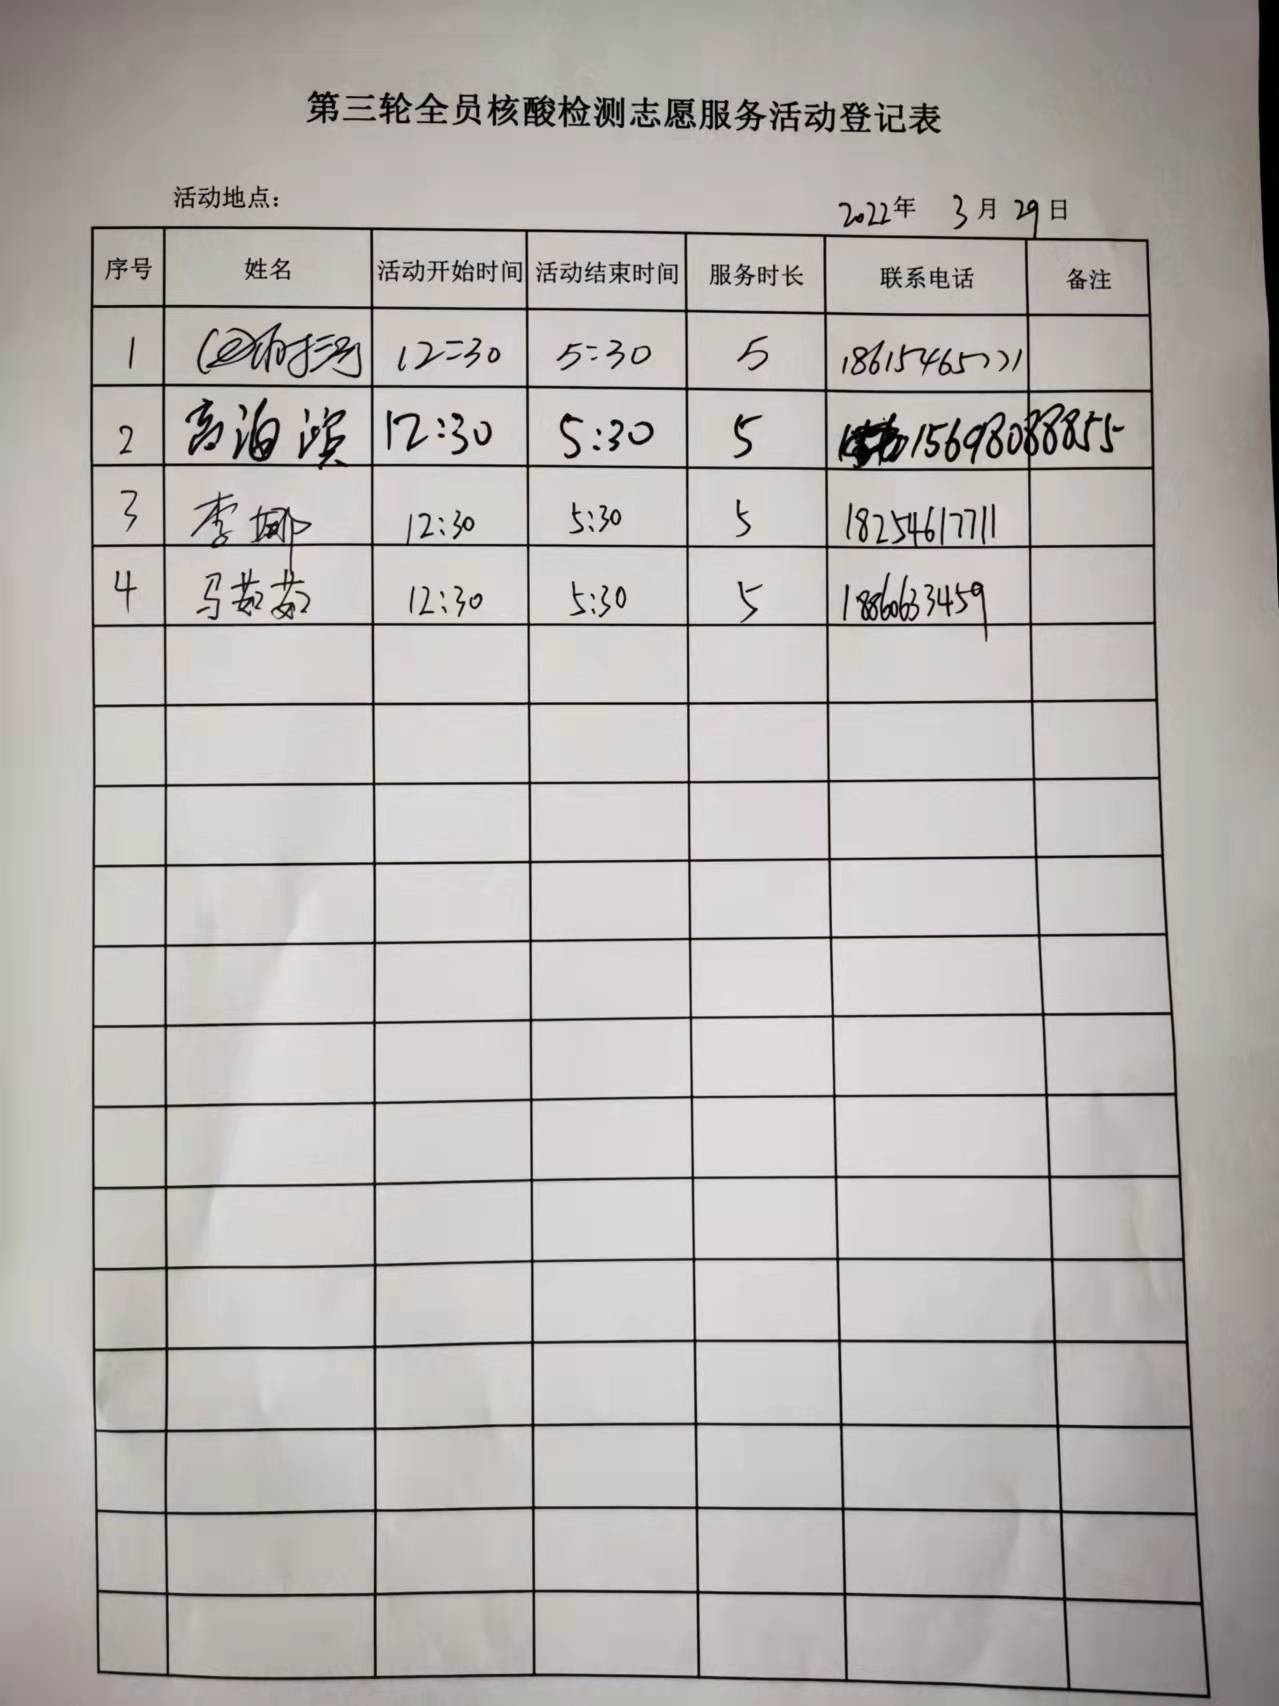 第三轮全员核酸检测志愿服务活动登记表
活动地点：
2022年 3月29日
序号 姓名 活动开始时间 活动结束时间 服务时长 联系电话 备注
1 12:30 5:30 5 18615465771
2 高泊滨 12:30 5:30 5 15698088855
3 李娜 12:30 5:30 5 18254617711
4 马茹茹 12:30 5:30 5 18860633459